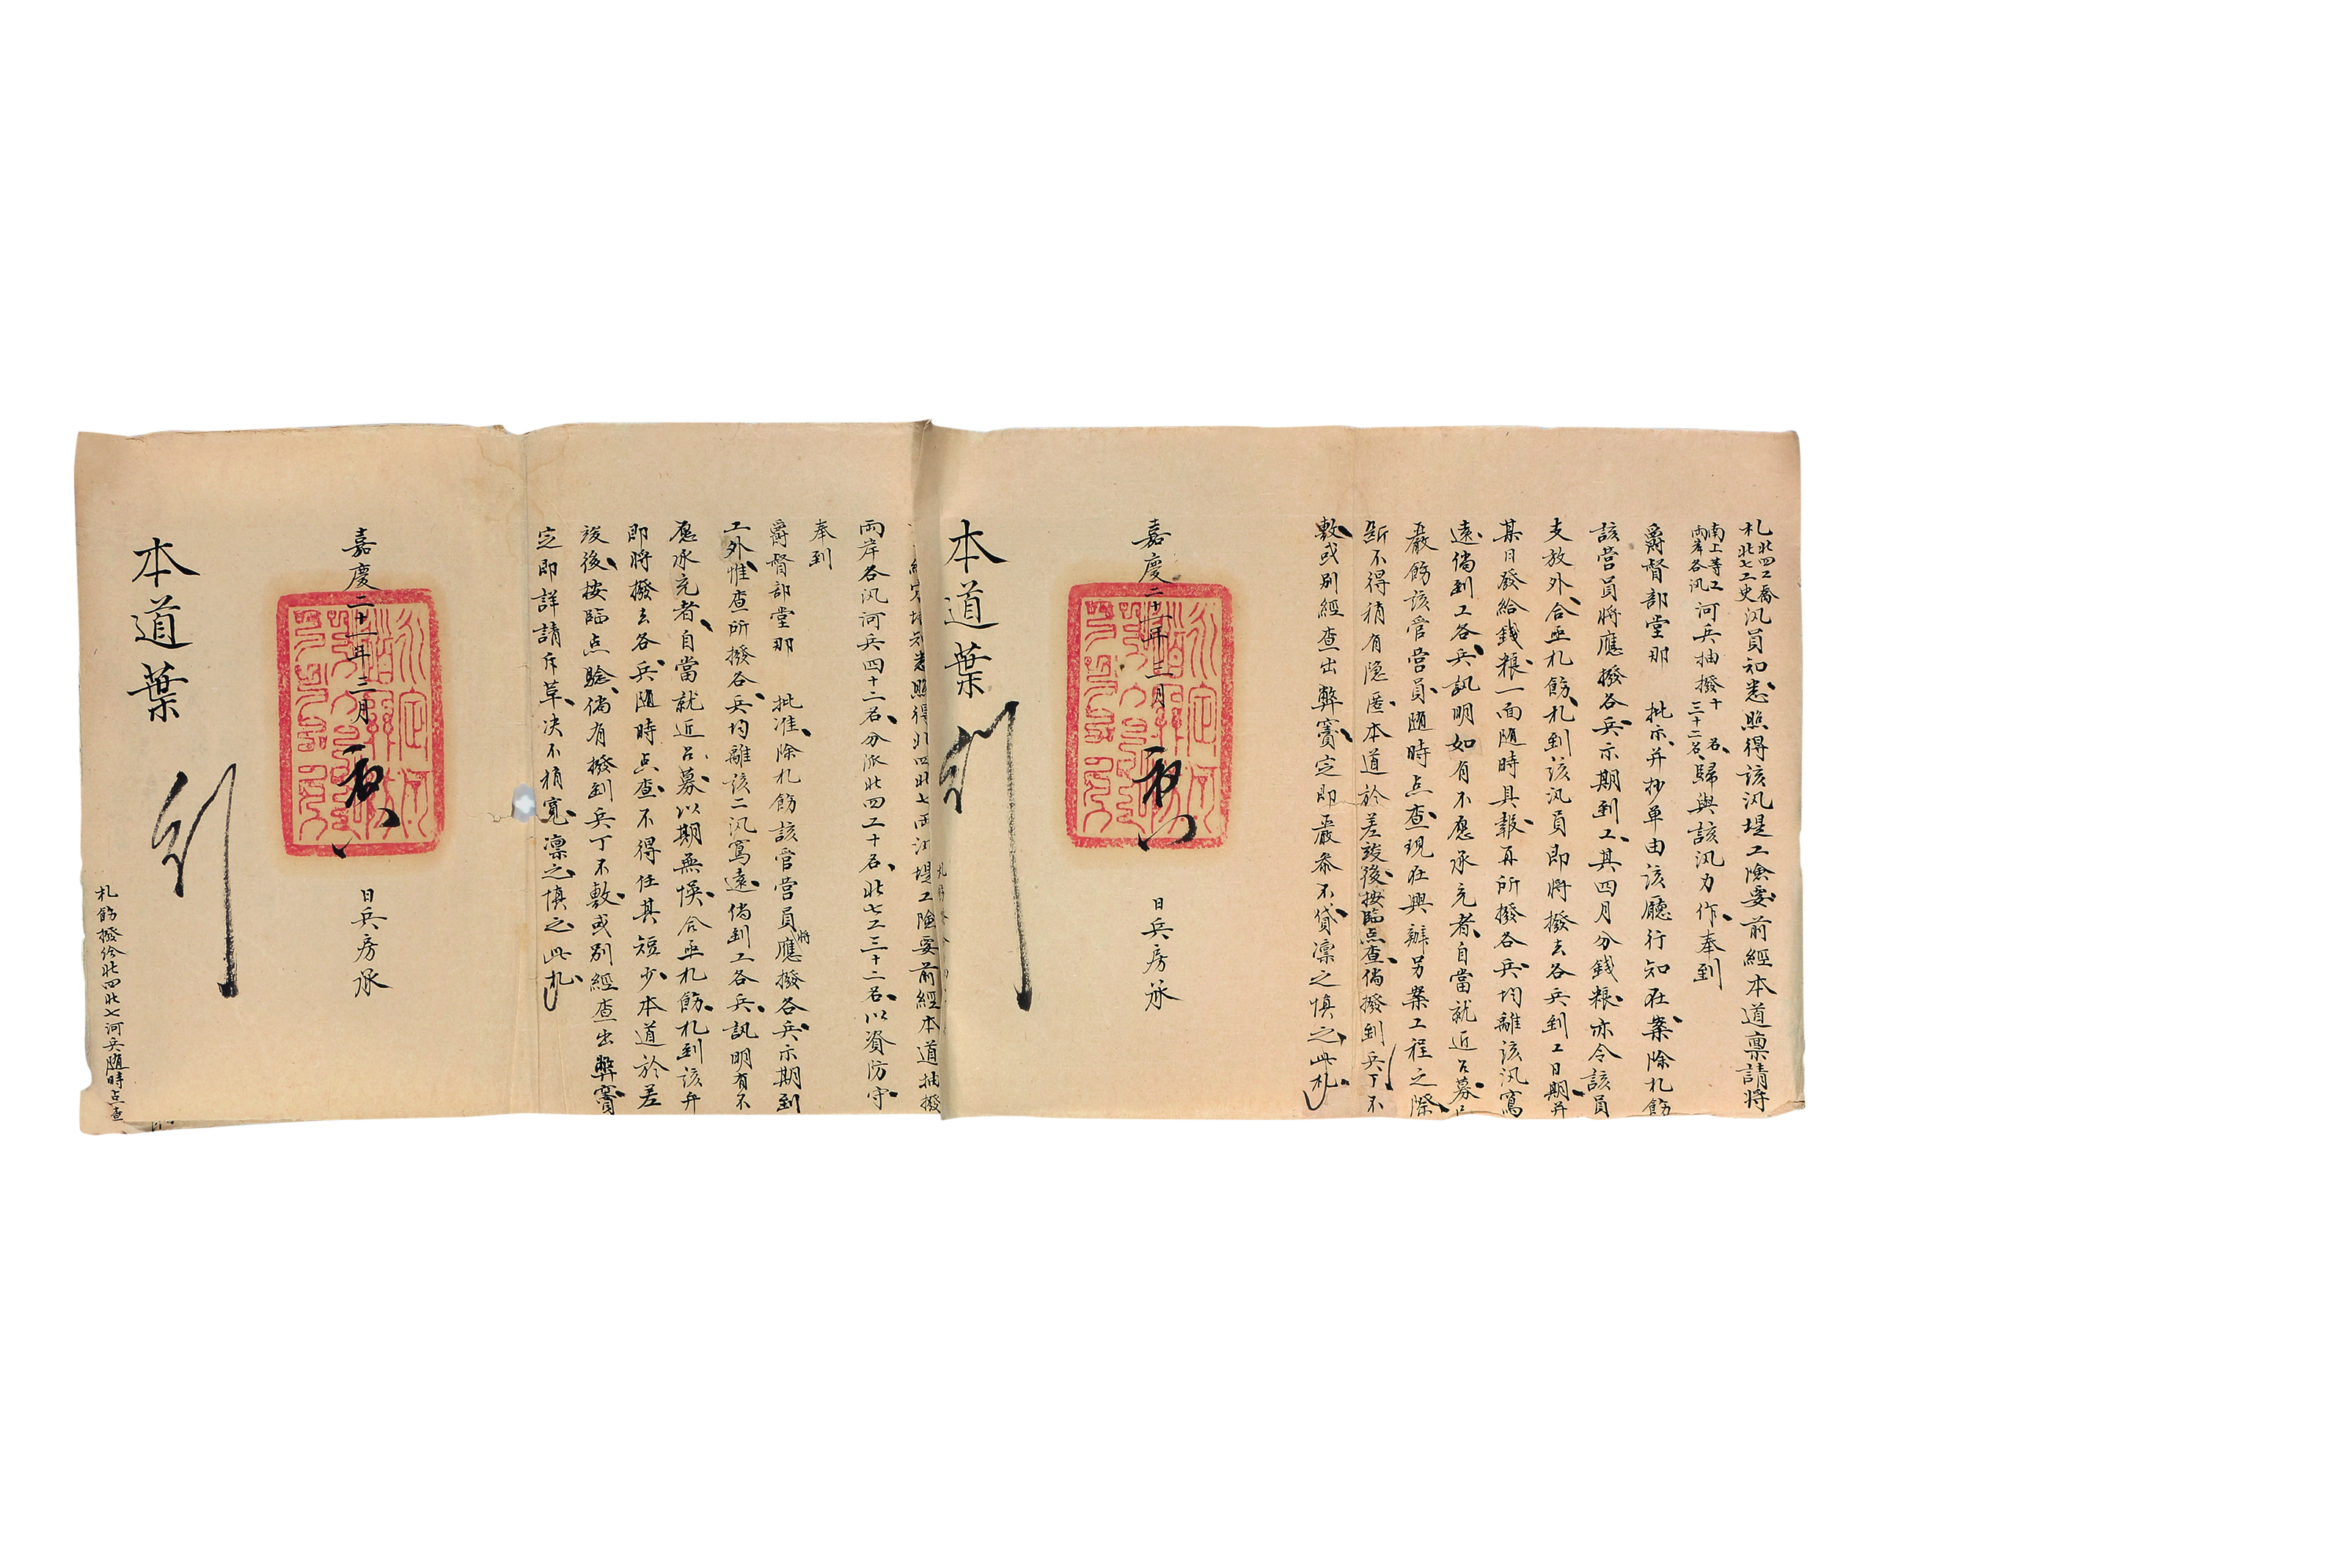 札北四工喬
北七工史汛員知悉照得該汛堤工險要前經本道稟請將
南上等工
兩岸各汛河兵抽撥十名
三十二名歸與該汛力作奉到
爵督部堂那 批示并抄單由該廳行知在案除札飭
該營員將應撥各兵示期到工其四月分錢粮亦令該員
支放外合亟札飭札到該汛員即將撥去各兵到工日期并
某日發給錢粮一面隨時具報再所撥各兵均離該汛寫
遠倘到工各兵訊明如有不愿承充者自當就近召募
嚴飭該管營員隨時点查現在興辦另案工程之際
斷不得稍有隐匿本道於差竣後按臨点查倘撥到兵丁不
敷或别經查出弊竇定即嚴叅不貸凜之慎之此札
嘉慶二十一年三月 日兵房承
本道葉
照得北四北七兩汛堤工險要前經本道抽撥
兩岸各汛河兵四十二名分派北四工十名北七工三十二名以資防守
奉到
爵督部堂那 批准除札飭該管營員將應撥各兵示期到
工外惟查所撥各兵均離該二汛寫遠倘到工各兵訊明有不
愿承充者自當就近召募以期無悞合亟札飭札到該弁
即將撥去各兵隨時点查不得任其短少本道於差
竣後按臨点驗倘有撥到兵丁不敷或别經查出弊竇
定即詳請斥革决不稍寬凛之慎之此札
嘉慶二十一年三月 日兵房承
本道葉
札飭撥给北四北七河兵隨時点查